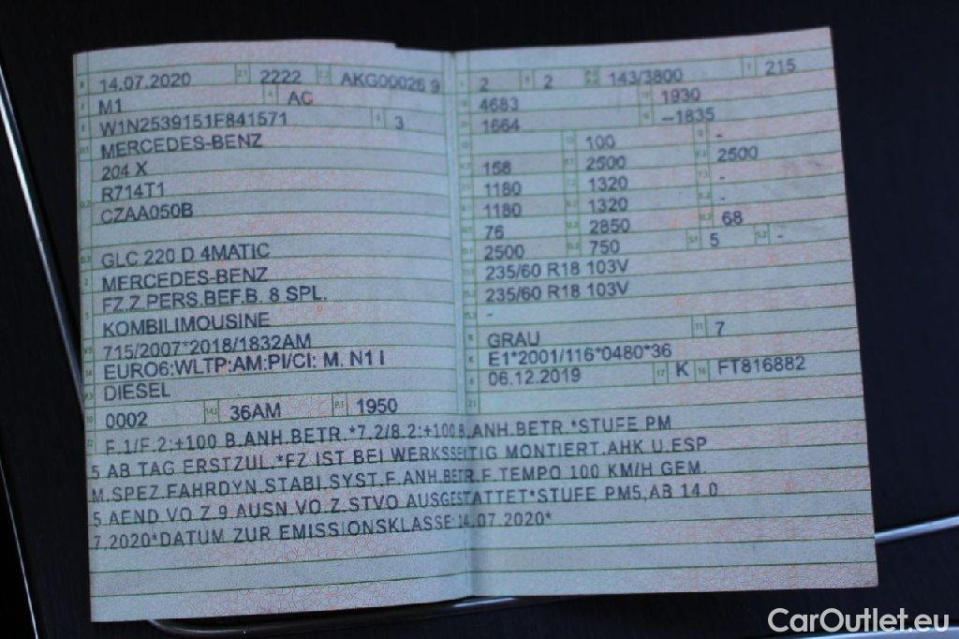 14.07.2020 2222 AKG00026 9
M1 AC
W1N2539151F841571 3
MERCEDES-BENZ
204 X
R714T1
CZAA050B
GLC 220 D 4MATIC
MERCEDES-BENZ
FZ.Z.PERS.BEF.B. 8 SPL.
KOMBILIMOUSINE
715/2007*2018/1832AM
EURO6;WLTP;AM:PI/CI: M, N1 I
DIESEL
0002 36AM 1950
2 2 143/3800 215
4683 1930
1664 --1835
100 -
158 2500 2500
1180 1320 -
1180 1320 -
76 2850 68
2500 750 5 -
235/60 R18 103V
235/60 R18 103V
-
GRAU 7
E1*2001/116*0480*36
06.12.2019 K FT816882
F.1/F.2:+100 B.ANH.BETR.*7.2/8.2:+100B.ANH.BETR.*STUFE PM
5 AB TAG ERSTZUL.*FZ IST BEI WERKSSEITIG MONTIERT.AHK U.ESP
M.SPEZ.FAHRDYN.STABI.SYST.F.ANH.BETR.F.TEMPO 100 KM/H GEM.
5.AEND.VO.Z.9.AUSN.VO.Z.STVO AUSGESTATTET*STUFE PM5,AB 14.0
7.2020*DATUM ZUR EMISSIONSKLASSE:14.07.2020*
CarOutlet.eu